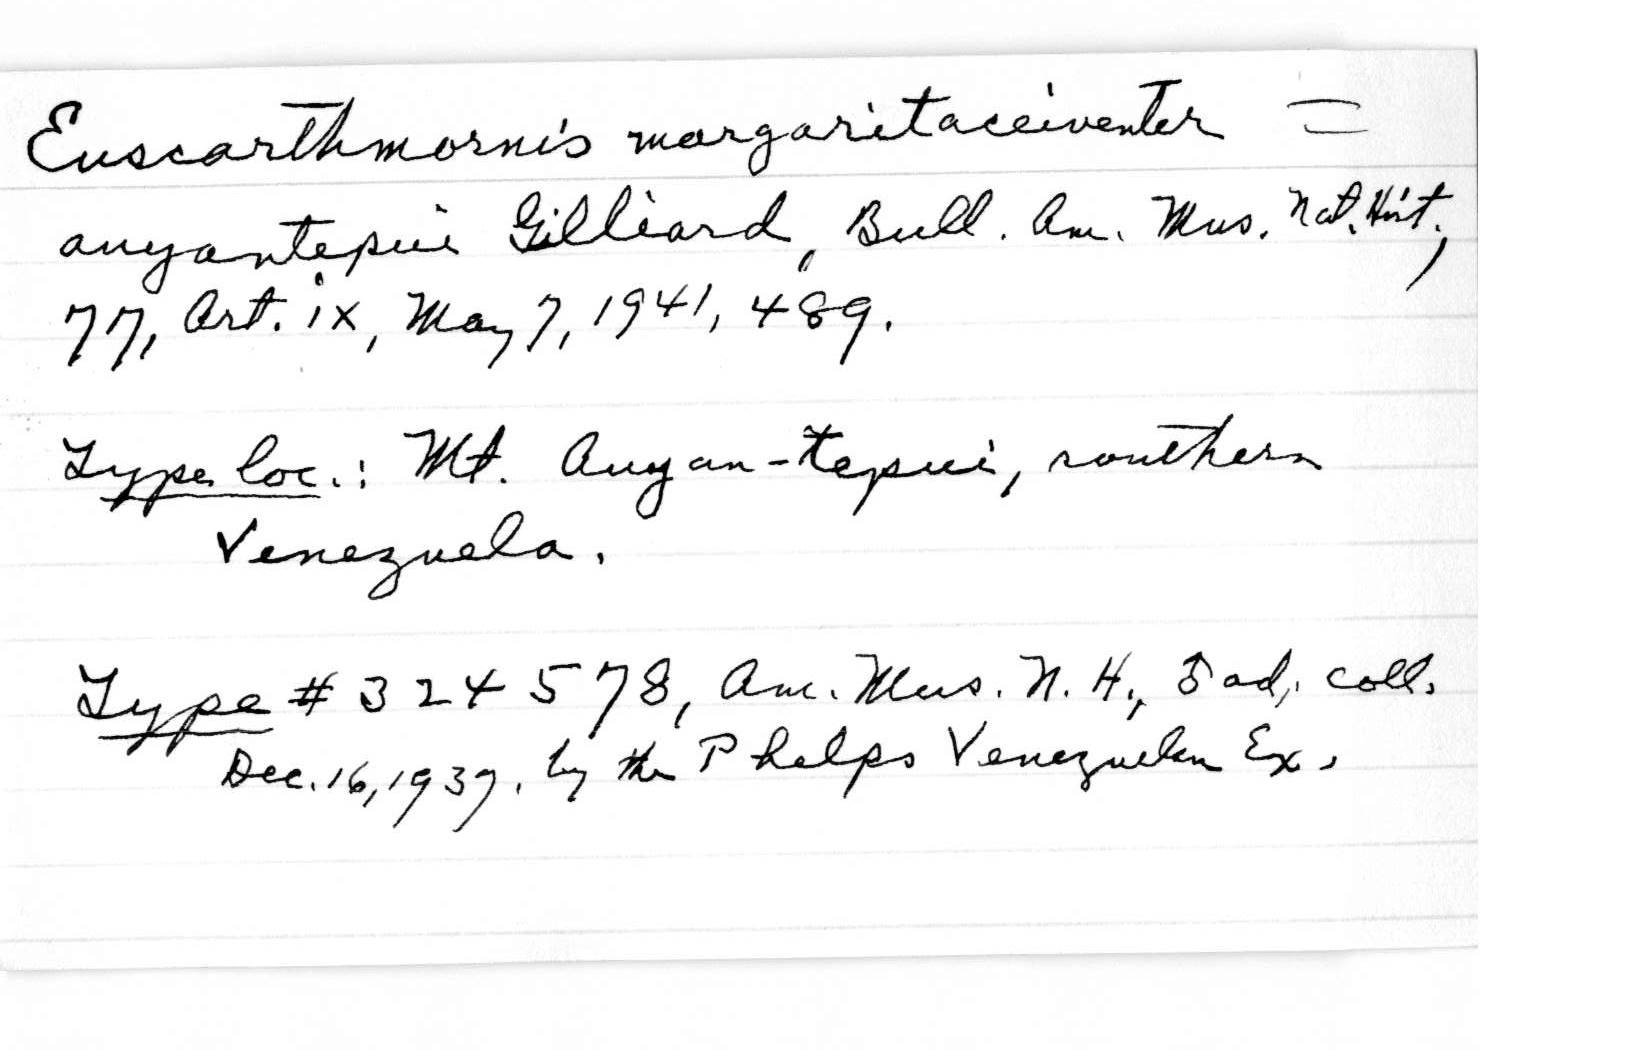 Euscarthmornis margaritaceiventer =
auyantepui Gilliard, Bull. Am. Mus. Nat. Hist.,
77, Art. ix, May 7, 1941, 489.
Type loc.: Mt. Auyan-tepui, southern
Venezuela.
Type # 324578, Am. Mus. N. H., ♂ ad., coll.
Dec. 16, 1937, by the Phelps Venezuelan Ex.